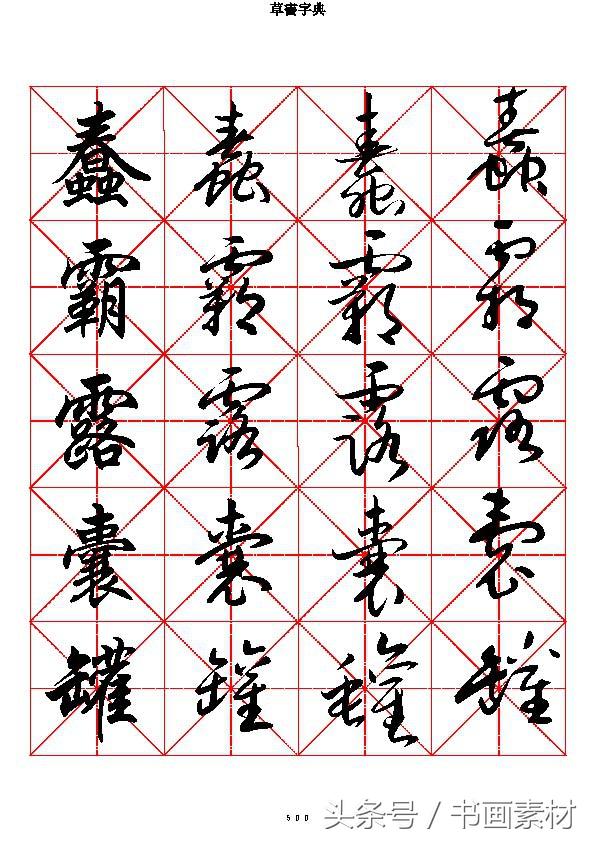 草書字典
蠢 蠢 蠢 蠢
霸 霸 霸 霸
露 露 露 露
囊 囊 囊 囊
罐 罐 罐 罐
500
头条号 / 书画素材